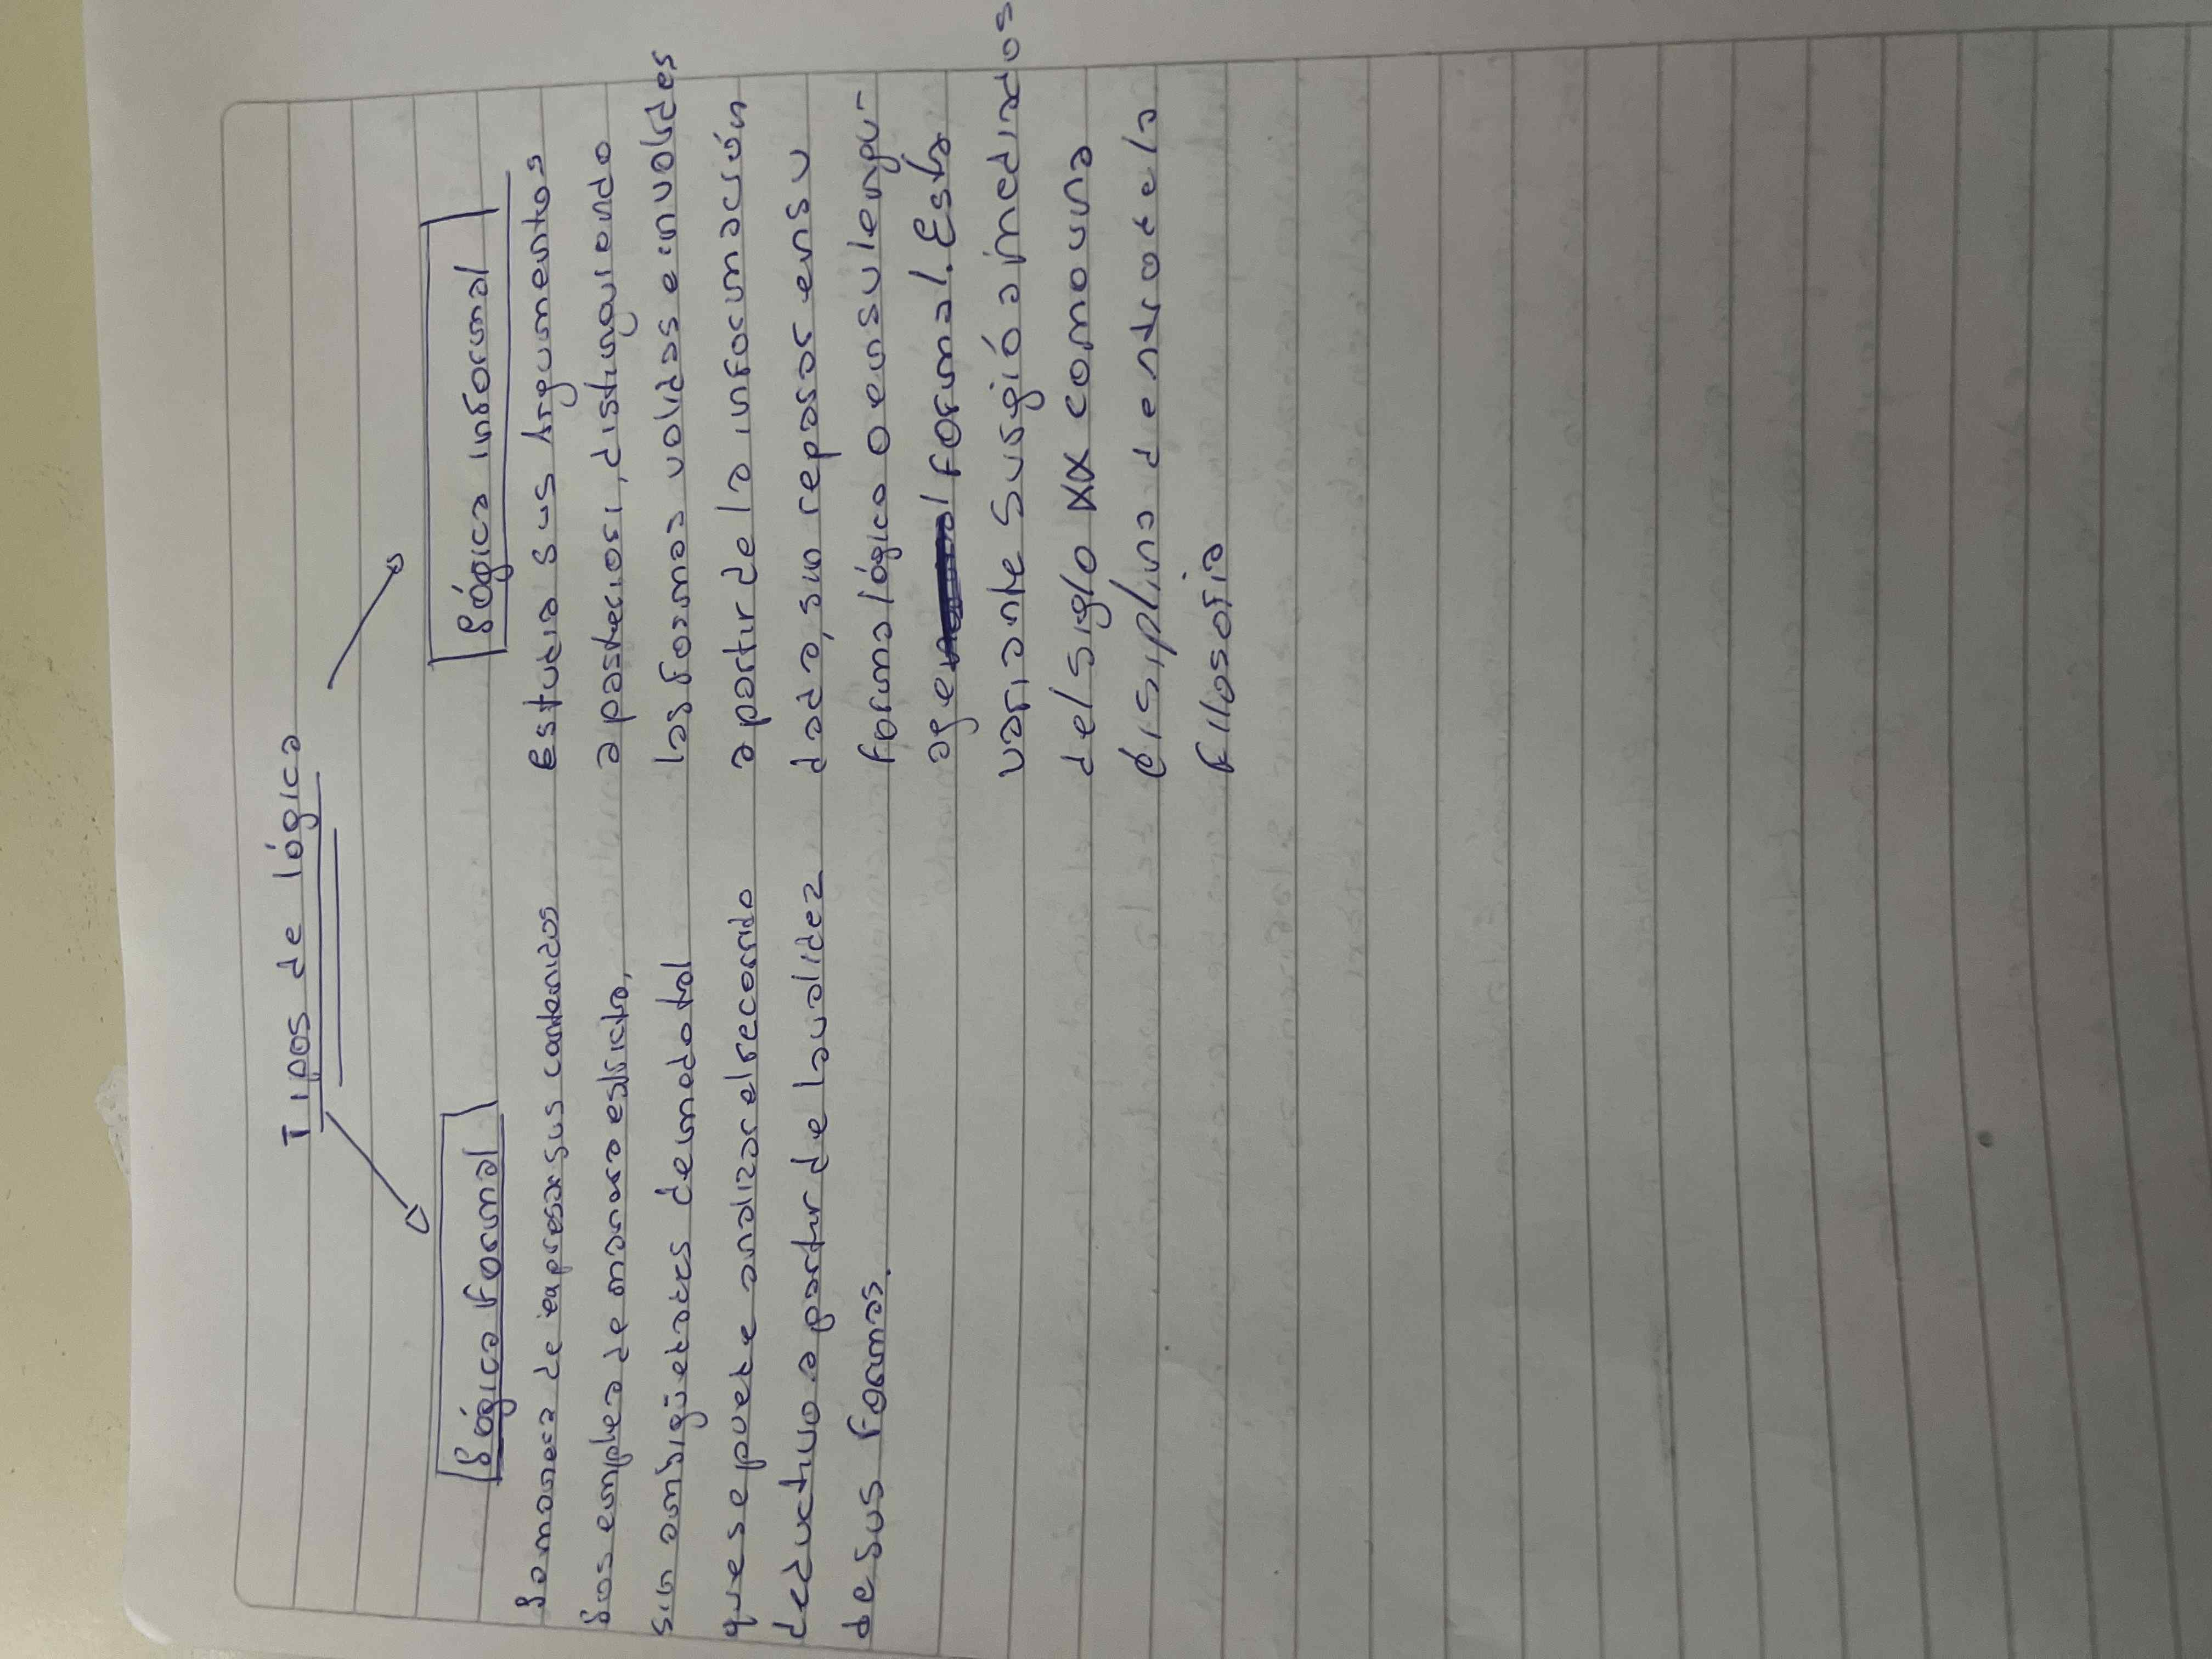 Tipos de lógica
Lógica formal
La manera de expresar sus contenidos
Los emplea de manera estricta,
sin ambigüedades de modo tal
que se puede analizar el recorrido
deductivo a partir de la validez
de sus formas.
Lógica informal
estudia sus argumentos
a posteriori, distinguiendo
las formas validas e invalides
a partir de la información
dada, sin reposar en su
forma lógico o en su lengu-
age formal. Esta
variante surgió a mediados
del siglo XX como una
disiplina dentro de la
filosofia